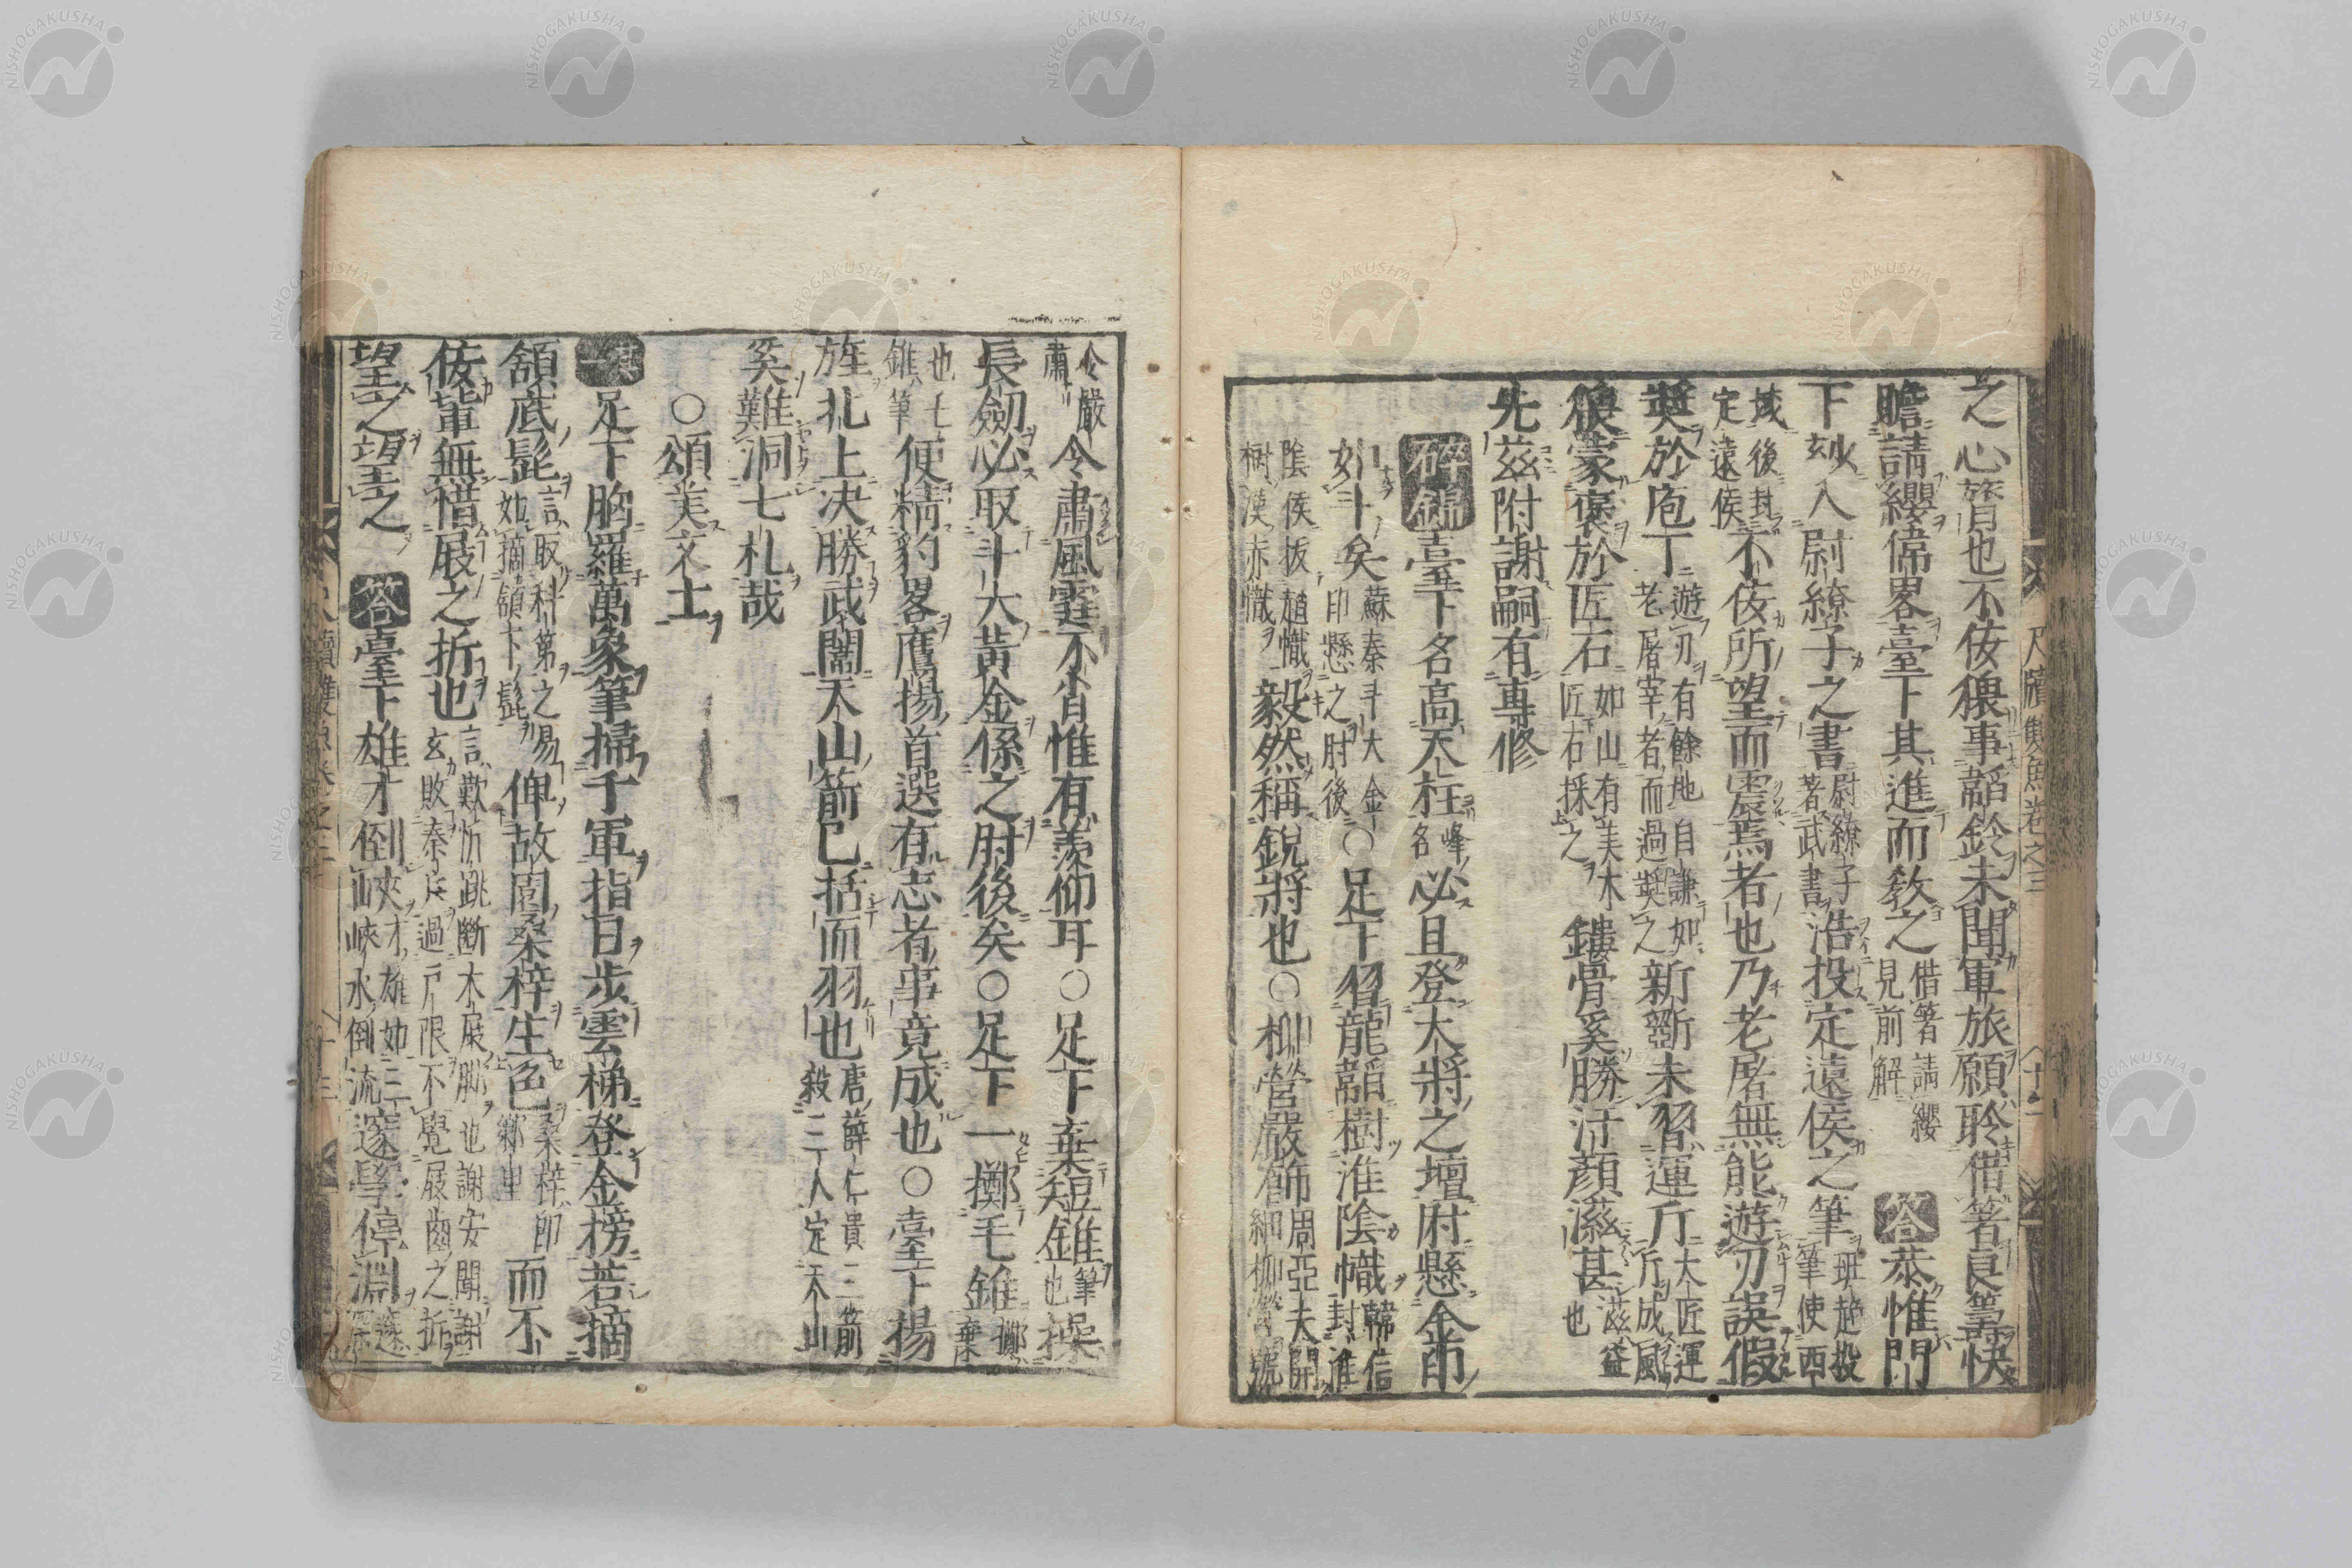 尺牘雙魚卷之三 十二
之心膂也不佞猥事韜鈐未聞軍旅願聆借箸良籌快
瞻請纓偉畧臺下其進而敎之借箸請纓見前解 答 恭惟門
下玅入尉繚子之書尉繚子著武書浩投定遠侯之筆班超投筆使西
域後封定遠侯不佞所望而震焉者也乃老屠無能遊刃誤假
奬於庖丁遊刃有餘地自謙如老屠宰者而過奬之新斵未習運斤大匠運斤成風
猥蒙褒於匠石如山有美木匠石採之鏤骨奚勝汗顏滋甚滋益也
先茲附謝嗣有專修
碎錦 臺下名高天柱峰名必且登大將之壇肘懸金印
如斗矣蘇秦斗大金印懸之肘後○足下習龍韜樹淮陰幟韓信封淮
陰侯拔趙幟樹漢赤幟毅然稱銳將也○柳營嚴飭周亞夫開細柳營號
令嚴肅令肅風霆不肖惟有羨仰耳○足下棄短錐筆也操
長劒必取斗大黃金係之肘後矣○足下一擲毛錐擲棄
也毛錐筆便精豹畧鷹揚首選有志者事竟成也○臺下揚
旌北上决勝武闈天山箭已括而羽也唐薛仁貴三箭殺三人定天山
奚難洞七札哉
○頌美文士
足下胸羅萬象筆掃千軍指日步雲梯登金榜若摘
頷底髭言取科第之易如摘頷下髭俾故園桑梓生色桑梓即鄉里而不
佞輩無惜屐之折也言歡忻跳斷木屐脚也謝安聞謝玄敗秦兵過戶限不覺屐齒之折
望之望之 答 臺下雄才倒峽才雄如三峽水倒流邃學停淵